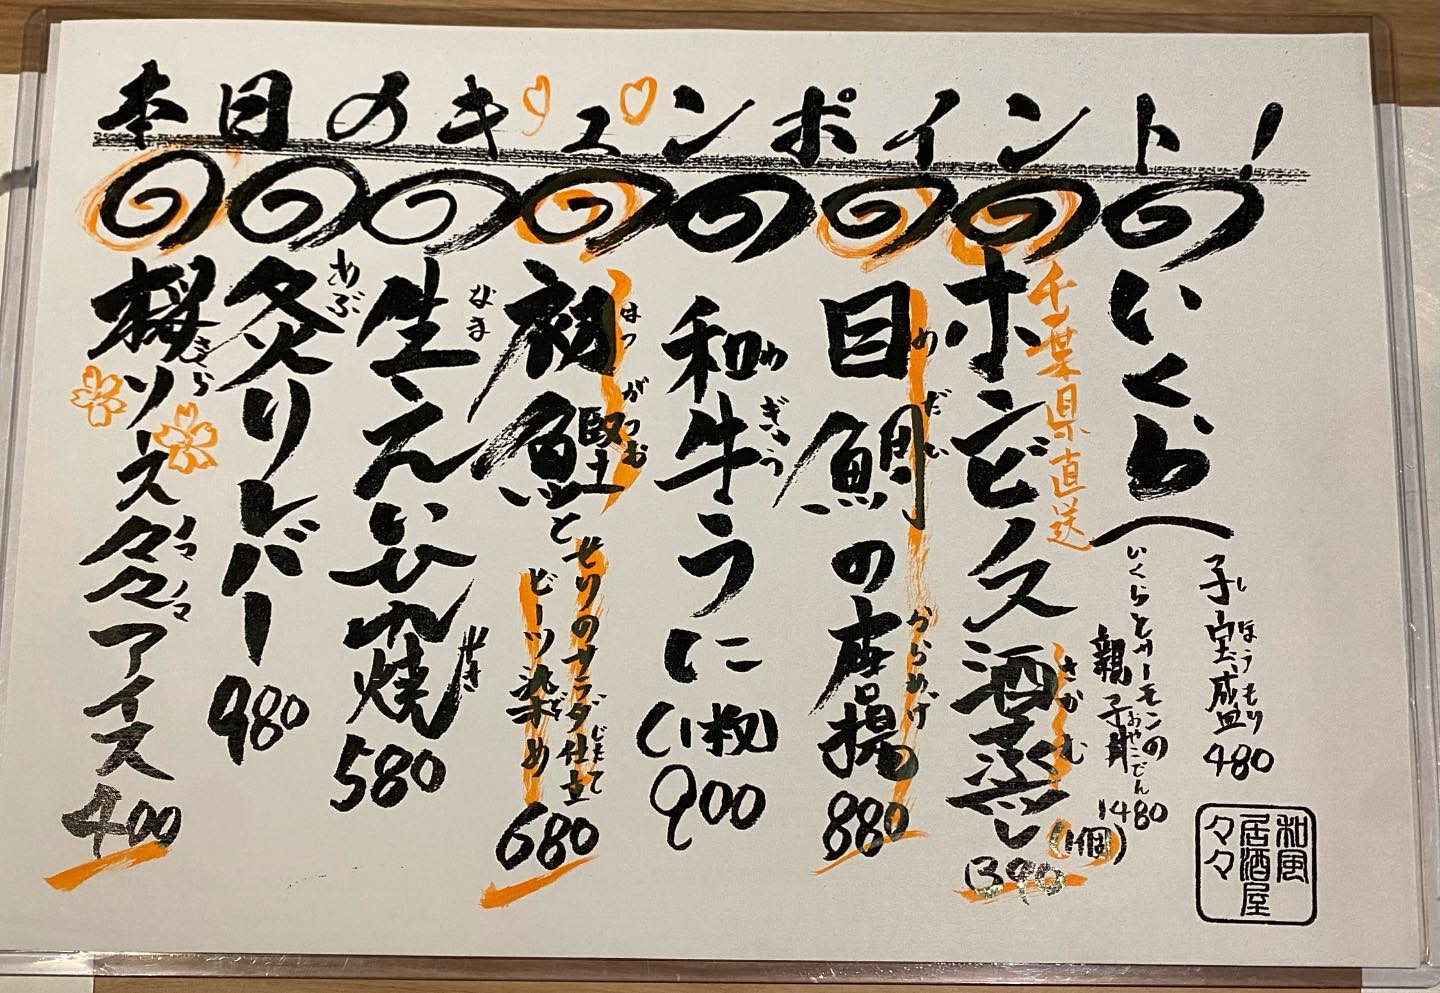 本日のキュンポイント!
いくら
子宝盛 480
しほうもり
いくらとサーモンの
親子丼 1480
おやこどん
千葉県直送
ホンビノス酒蒸し
さかむ
(1個)
390
目鯛の唐揚
めだい
からあげ
880
和牛うに(1枚)
わぎゅう
900
初鰹と
はつがつお
せりのナラダ仕立て
じたて
ビーツ染め
ぞ
680
生えいひれ焼
なま
やき
580
炙りレバー
あぶ
980
桜ソース々々アイス
さくら
ノマノマ
400
和風
居酒屋
々々